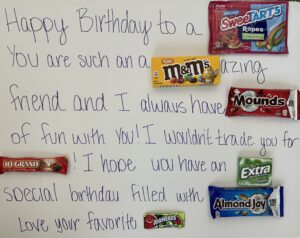 Happy Birthday to a SweeTARTS Ropes
You are such an a M&M's azing
friend and I always have Mounds
of fun with you! I wouldn't trade you for
100 GRAND ! I hope you have an Extra
special birthday filled with Almond Joy
Love your favorite AIRHEADS